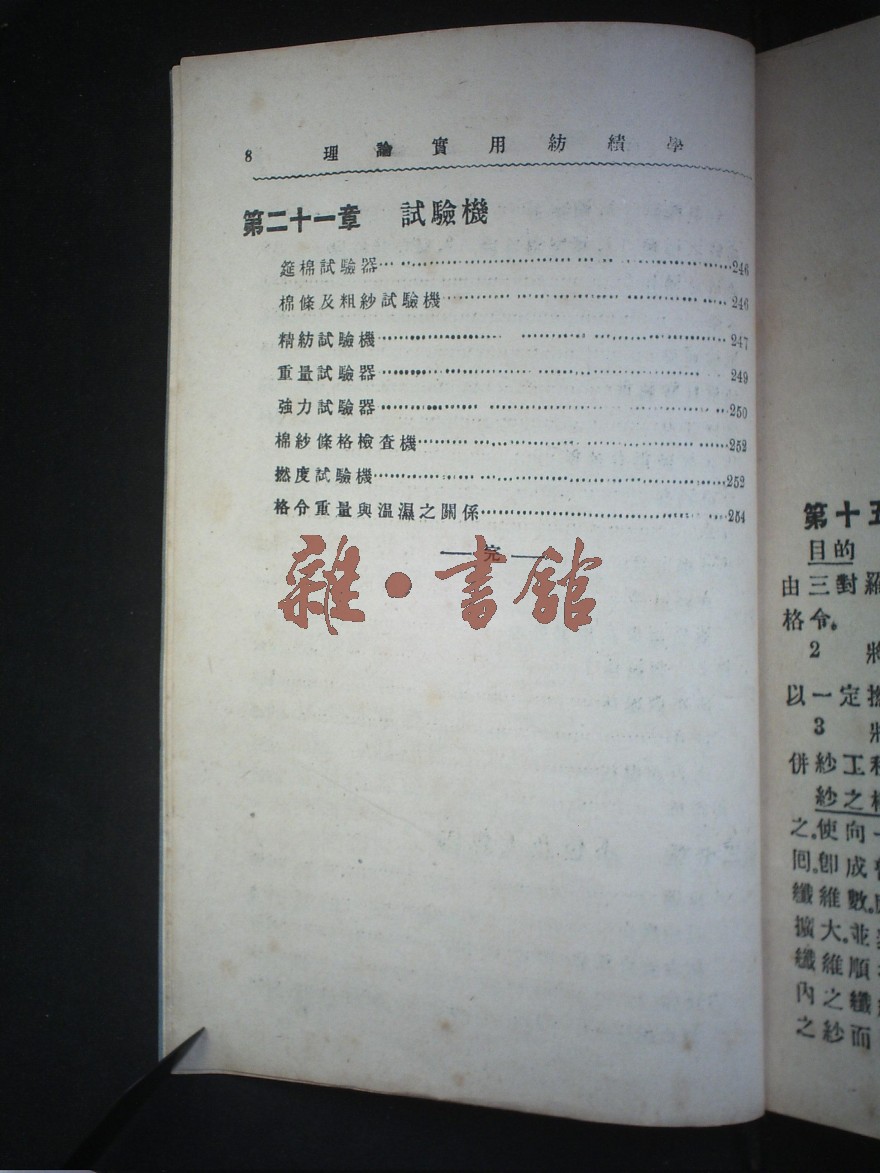 8 理論實用紡績學
第二十一章 試驗機
筵棉試驗器……246
棉條及粗紗試驗機……246
精紡試驗機……247
重量試驗器……249
強力試驗器……250
棉紗條格檢查機……252
撚度試驗機……252
格令重量與溫濕之關係……254
——完——
雜·書館
第十五
目的
由三對羅
格令。
2 將
以一定撚
3 將
併紗工程
紗之
之,使向一
回,卽成
纖維數,
擴大,並
纖維順
內之纖
之紗而